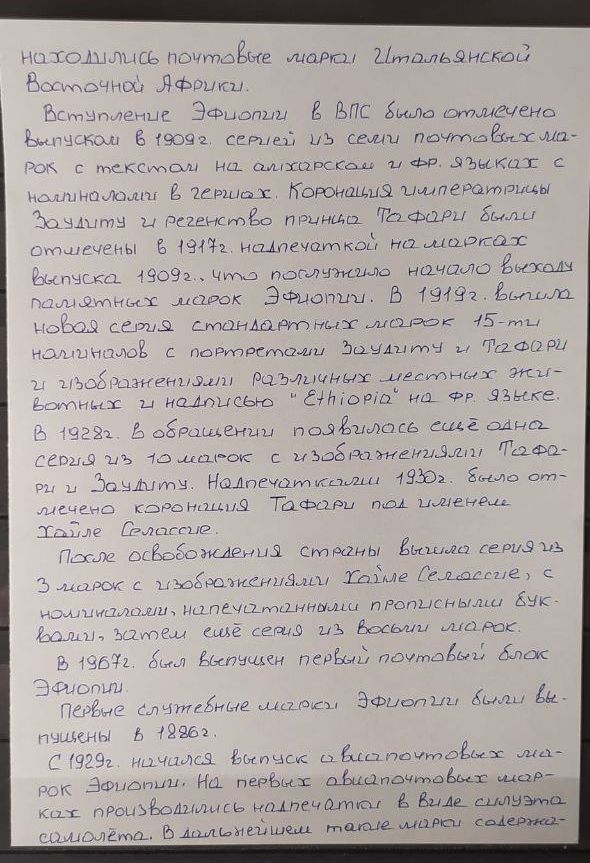 находились почтовые марки Итальянской
Восточной Африки.
Вступление Эфиопии в ВПС было отмечено
выпуском в 1909г. серией из семи почтовых ма-
рок с текстом на амхарском и фр. языках с
номиналами в гершах. Коронация императрицы
Заудиту и регенство принца Тафари были
отмечены в 1917г. надпечаткой на марках
выпуска 1909г., что послужило начало выходу
памятных марок Эфиопии. В 1919г. вышла
новая серия стандартных марок 15-ти
номиналов с портретами Заудиту и Тафари
и изображениями различных местных жи-
вотных и надписью "Ethiopia" на фр. языке.
В 1928г. в обращении появилась ещё одна
серия из 10 марок с изображениями Тафа-
ри и Заудиту. Надпечатками 1930г. было от-
мечено коронация Тафари под именем
Хайле Селассие.
После освобождения страны вышла серия из
3 марок с изображениями Хайле Селассие, с
номиналами, напечатанными прописными бук-
вами, затем ещё серия из восьми марок.
В 1967г. был выпущен первый почтовый блок
Эфиопии.
Первые служебные марки Эфиопии были вы-
пущены в 1896г.
С 1929г. начался выпуск авиапочтовых ма-
рок Эфиопии. На первых авиапочтовых мар-
ках производились надпечатки в виде силуэта
самолёта. В дальнейшем такие марки содержа-